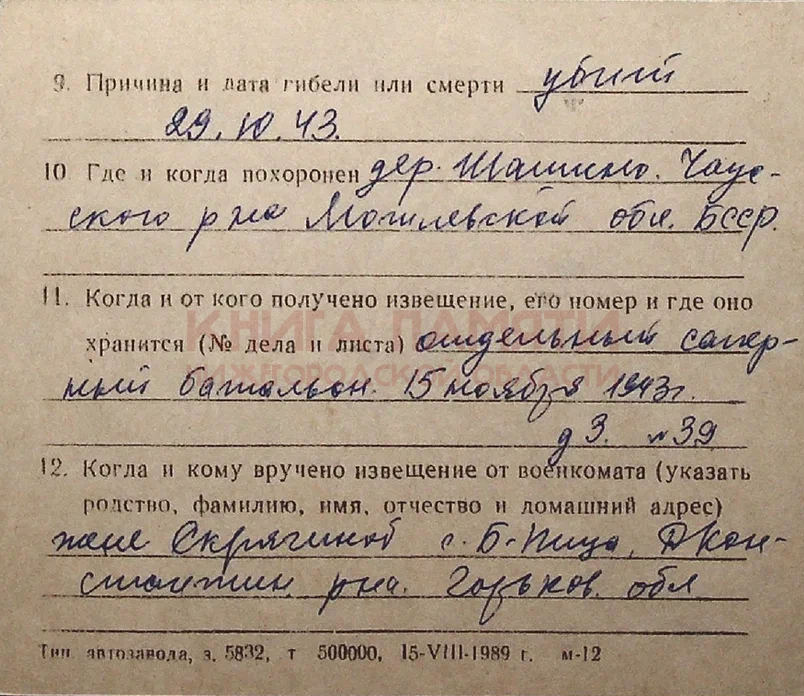 9. Причина и дата гибели или смерти убит
29.10.43.
10 Где и когда похоронен дер. Шашино. Чаус-
ского р на Могилевской обл. БССР.
11. Когда и от кого получено извещение, его номер и где оно
КНИГА ПАМЯТИ
хранится (№ дела и листа) отдельный сапер-
НИЖЕГОРОДСКОЙ ОБЛАСТИ
ный батальон. 15 ноября 1943г.
д 3. л 39
12. Когда и кому вручено извещение от военкомата (указать
родство, фамилию, имя, отчество и домашний адрес)
жене Скрягиной с. Б-Пица, Д Кон-
стантин. р на. Горьков. обл
Тип. автозавода, з. 5832, т 500000, 15-VIII-1989 г. м-12